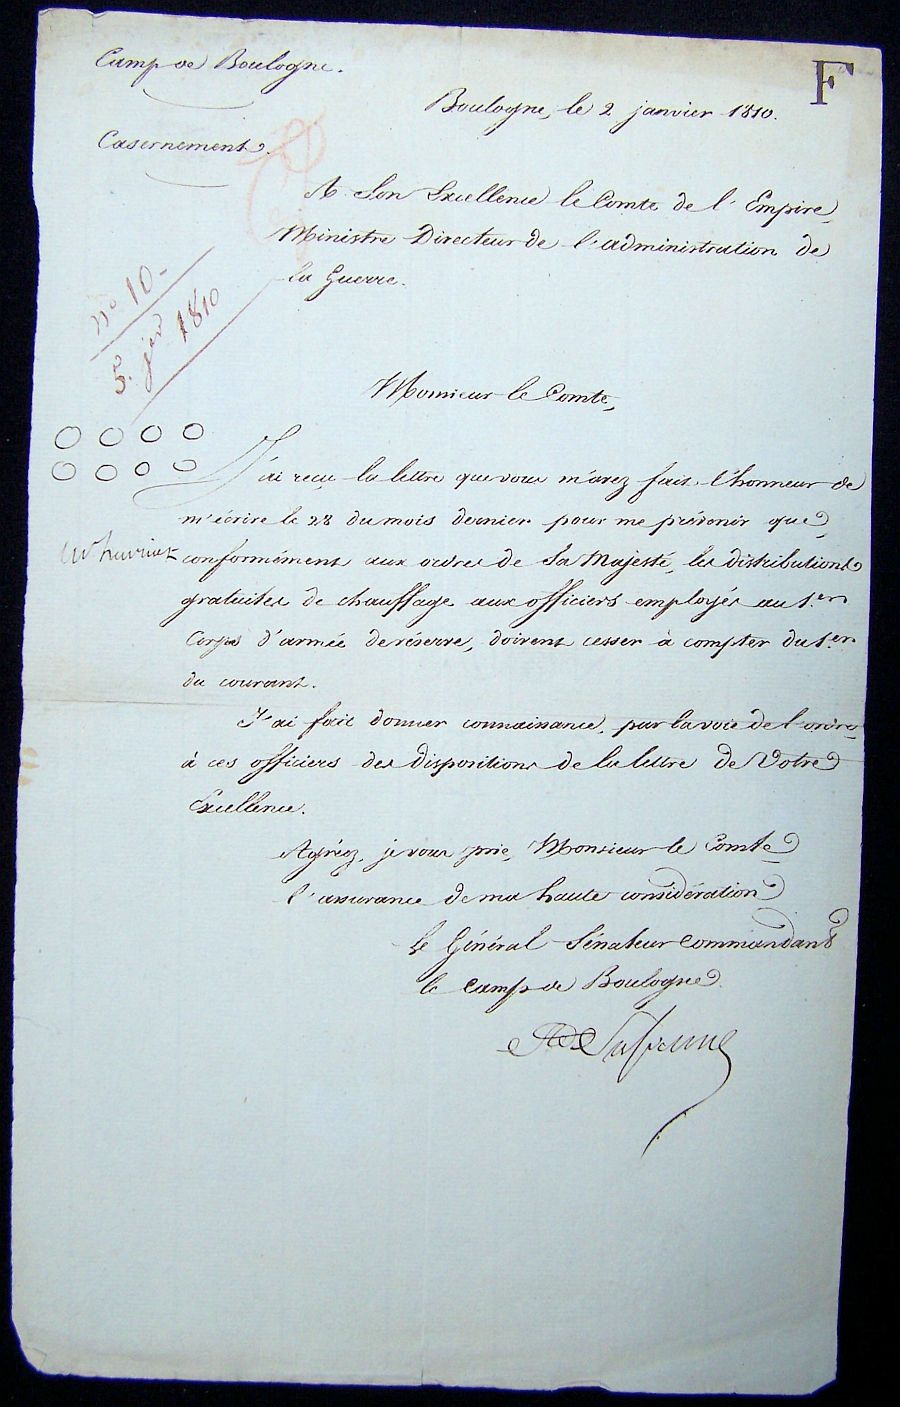 Camp de Boulogne.
F
Boulogne, le 2 janvier 1810.
Casernement.
A Son Excellence le Comte de l'Empire,
Ministre Directeur de l'administration de
la Guerre.
n° 10-
5. jer 1810
Monsieur le Comte,
J'ai reçu la lettre que vous m'avez fait l'honneur de
m'écrire le 28 du mois dernier pour me prévenir que,
conformément aux ordres de Sa Majesté, les distributions
gratuites de chauffage aux officiers employés au 1.er
Corps d'armée de réserve, doivent cesser à compter du 1.er
du courant.
J'ai fait donner connaissance, par la voie de l'ordre,
à ces officiers des dispositions de la lettre de Votre
Excellence.
Agréez, je vous prie, Monsieur le Comte,
l'assurance de ma haute considération
Le Général Sénateur commandant
le camp de Boulogne.